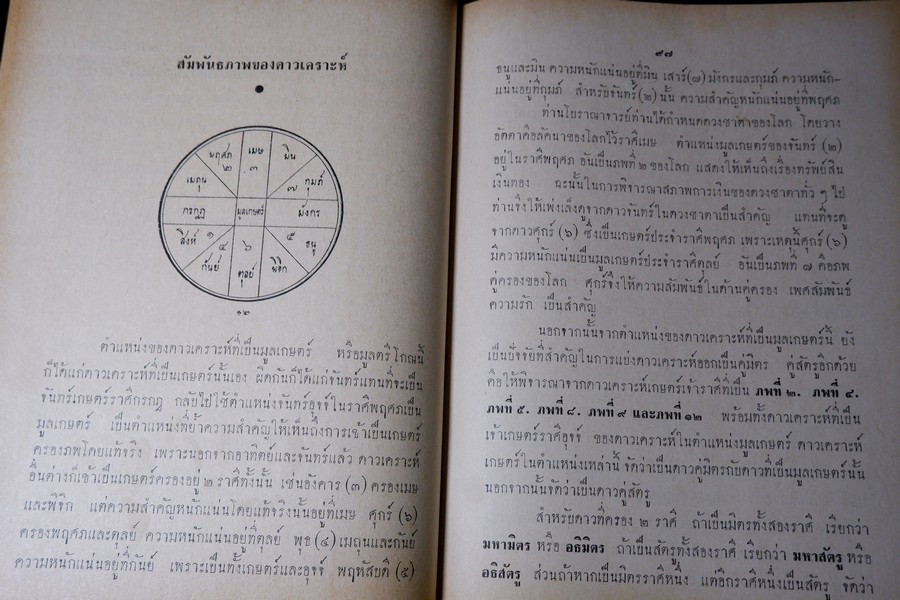 สัมพันธภาพของดาวเคราะห์
เมษ
๓
พฤศภ
๒
มีน
เมถุน
๗ กุมภ์
กรกฎ
มูลเกษตร์
มังกร
สิงห์ ๑
๔
๖
๕
ธนู
กันย์
ตุลย์
พิจิก
๑๒
ตำแหน่งของดาวเคราะห์ที่เป็นมูลเกษตร์ หรือมูลตรีโกณนี้
ก็ได้แก่ดาวเคราะห์ที่เป็นเกษตร์นั้นเอง ผิดกันก็ได้แก่จันทร์แทนที่จะเป็น
จันทร์เกษตร์ราศีกรกฎ กลับไปใช้ตำแหน่งจันทร์อุจจ์ในราศีพฤศภเป็น
มูลเกษตร์ เป็นตำแหน่งที่ย้ำความสำคัญให้เห็นถึงการเข้าเป็นเกษตร์
ครองภพโดยแท้จริง เพราะนอกจากอาทิตย์และจันทร์แล้ว ดาวเคราะห์
อื่นต่างก็เข้าเป็นเกษตร์ครองอยู่ ๒ ราศีทั้งนั้น เช่นอังคาร (๓) ครองเมษ
และพิจิก แต่ความสำคัญหนักแน่นโดยแท้จริงนั้นอยู่ที่เมษ ศุกร์ (๖)
ครองพฤศภและตุลย์ ความหนักแน่นอยู่ที่ตุลย์ พุธ (๔) เมถุนและกันย์
ความหนักแน่นอยู่ที่กันย์ เพราะเป็นทั้งเกษตร์และอุจจ์ พฤหัสบดี (๕)
๙๗
ธนูและมีน ความหนักแน่นอยู่ที่มีน เสาร์ (๗) มังกรและกุมภ์ ความหนัก-
แน่นอยู่ที่กุมภ์ สำหรับจันทร์ (๒) นั้น ความสำคัญหนักแน่นอยู่ที่พฤศภ
ท่านโบราณาจารย์ท่านได้กำหนดดวงชาตาของโลก โดยวาง
อัตตาคือลัคนาของโลกไว้ราศีเมษ ตำแหน่งมูลเกษตร์ของจันทร์ (๒)
อยู่ในราศีพฤศภ อันเป็นภพที่ ๒ ของโลก แสดงให้เห็นถึงเรื่องทรัพย์สิน
เงินทอง ฉะนั้นในการพิจารณาสภาพการเงินของดวงชาตาทั่ว ๆ ไป
ท่านจึงให้เพ่งเล็งดูจากดาวจันทร์ในดวงชาตาเป็นสำคัญ แทนที่จะดู
จากดาวศุกร์ (๖) ซึ่งเป็นเกษตร์ประจำราศีพฤศภ เพราะเหตุนี้ศุกร์ (๖)
มีความหนักแน่นเป็นมูลเกษตร์ประจำราศีตุลย์ อันเป็นภพที่ ๗ คือภพ
คู่ครองของโลก ศุกร์จึงให้ความสัมพันธ์ในด้านคู่ครอง เพศสัมพันธ์
ความรัก เป็นสำคัญ
นอกจากนั้นจากตำแหน่งของดาวเคราะห์ที่เป็นมูลเกษตร์นี้ ยัง
เป็นปัจจัยที่สำคัญในการแบ่งดาวเคราะห์ออกเป็นคู่มิตร คู่สัตรูอีกด้วย
คือให้พิจารณาจากดาวเคราะห์เกษตร์เจ้าราศีที่เป็น ภพที่ ๒. ภพที่ ๔.
ภพที่ ๕. ภพที่ ๘. ภพที่ ๙ และภพที่ ๑๒ พร้อมทั้งดาวเคราะห์ที่เป็น
เจ้าเกษตร์ราศีอุจจ์ ของดาวเคราะห์ในตำแหน่งมูลเกษตร์ ดาวเคราะห์
เกษตร์ในตำแหน่งเหล่านี้ จัดว่าเป็นดาวคู่มิตรกับดาวที่เป็นมูลเกษตร์นั้น
นอกจากนั้นจัดว่าเป็นดาวคู่สัตรู
สำหรับดาวที่ครอง ๒ ราศี ถ้าเป็นมิตรทั้งสองราศี เรียกว่า
มหามิตร หรือ อธิมิตร ถ้าเป็นสัตรูทั้งสองราศี เรียกว่า มหาสัตรู หรือ
อธิสัตรู ส่วนถ้าหากเป็นมิตรราศีหนึ่ง แต่อีกราศีหนึ่งเป็นสัตรู จัดว่า